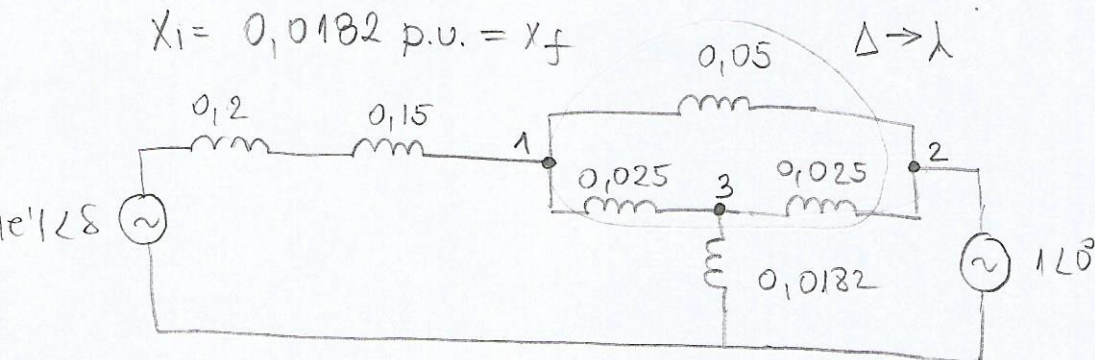 Xi = 0,0182 p.u. = Xf
Δ → λ
0,05
0,2
0,15
1
2
0,025
3
0,025
|e'|∠δ
0,0182
1∠0°